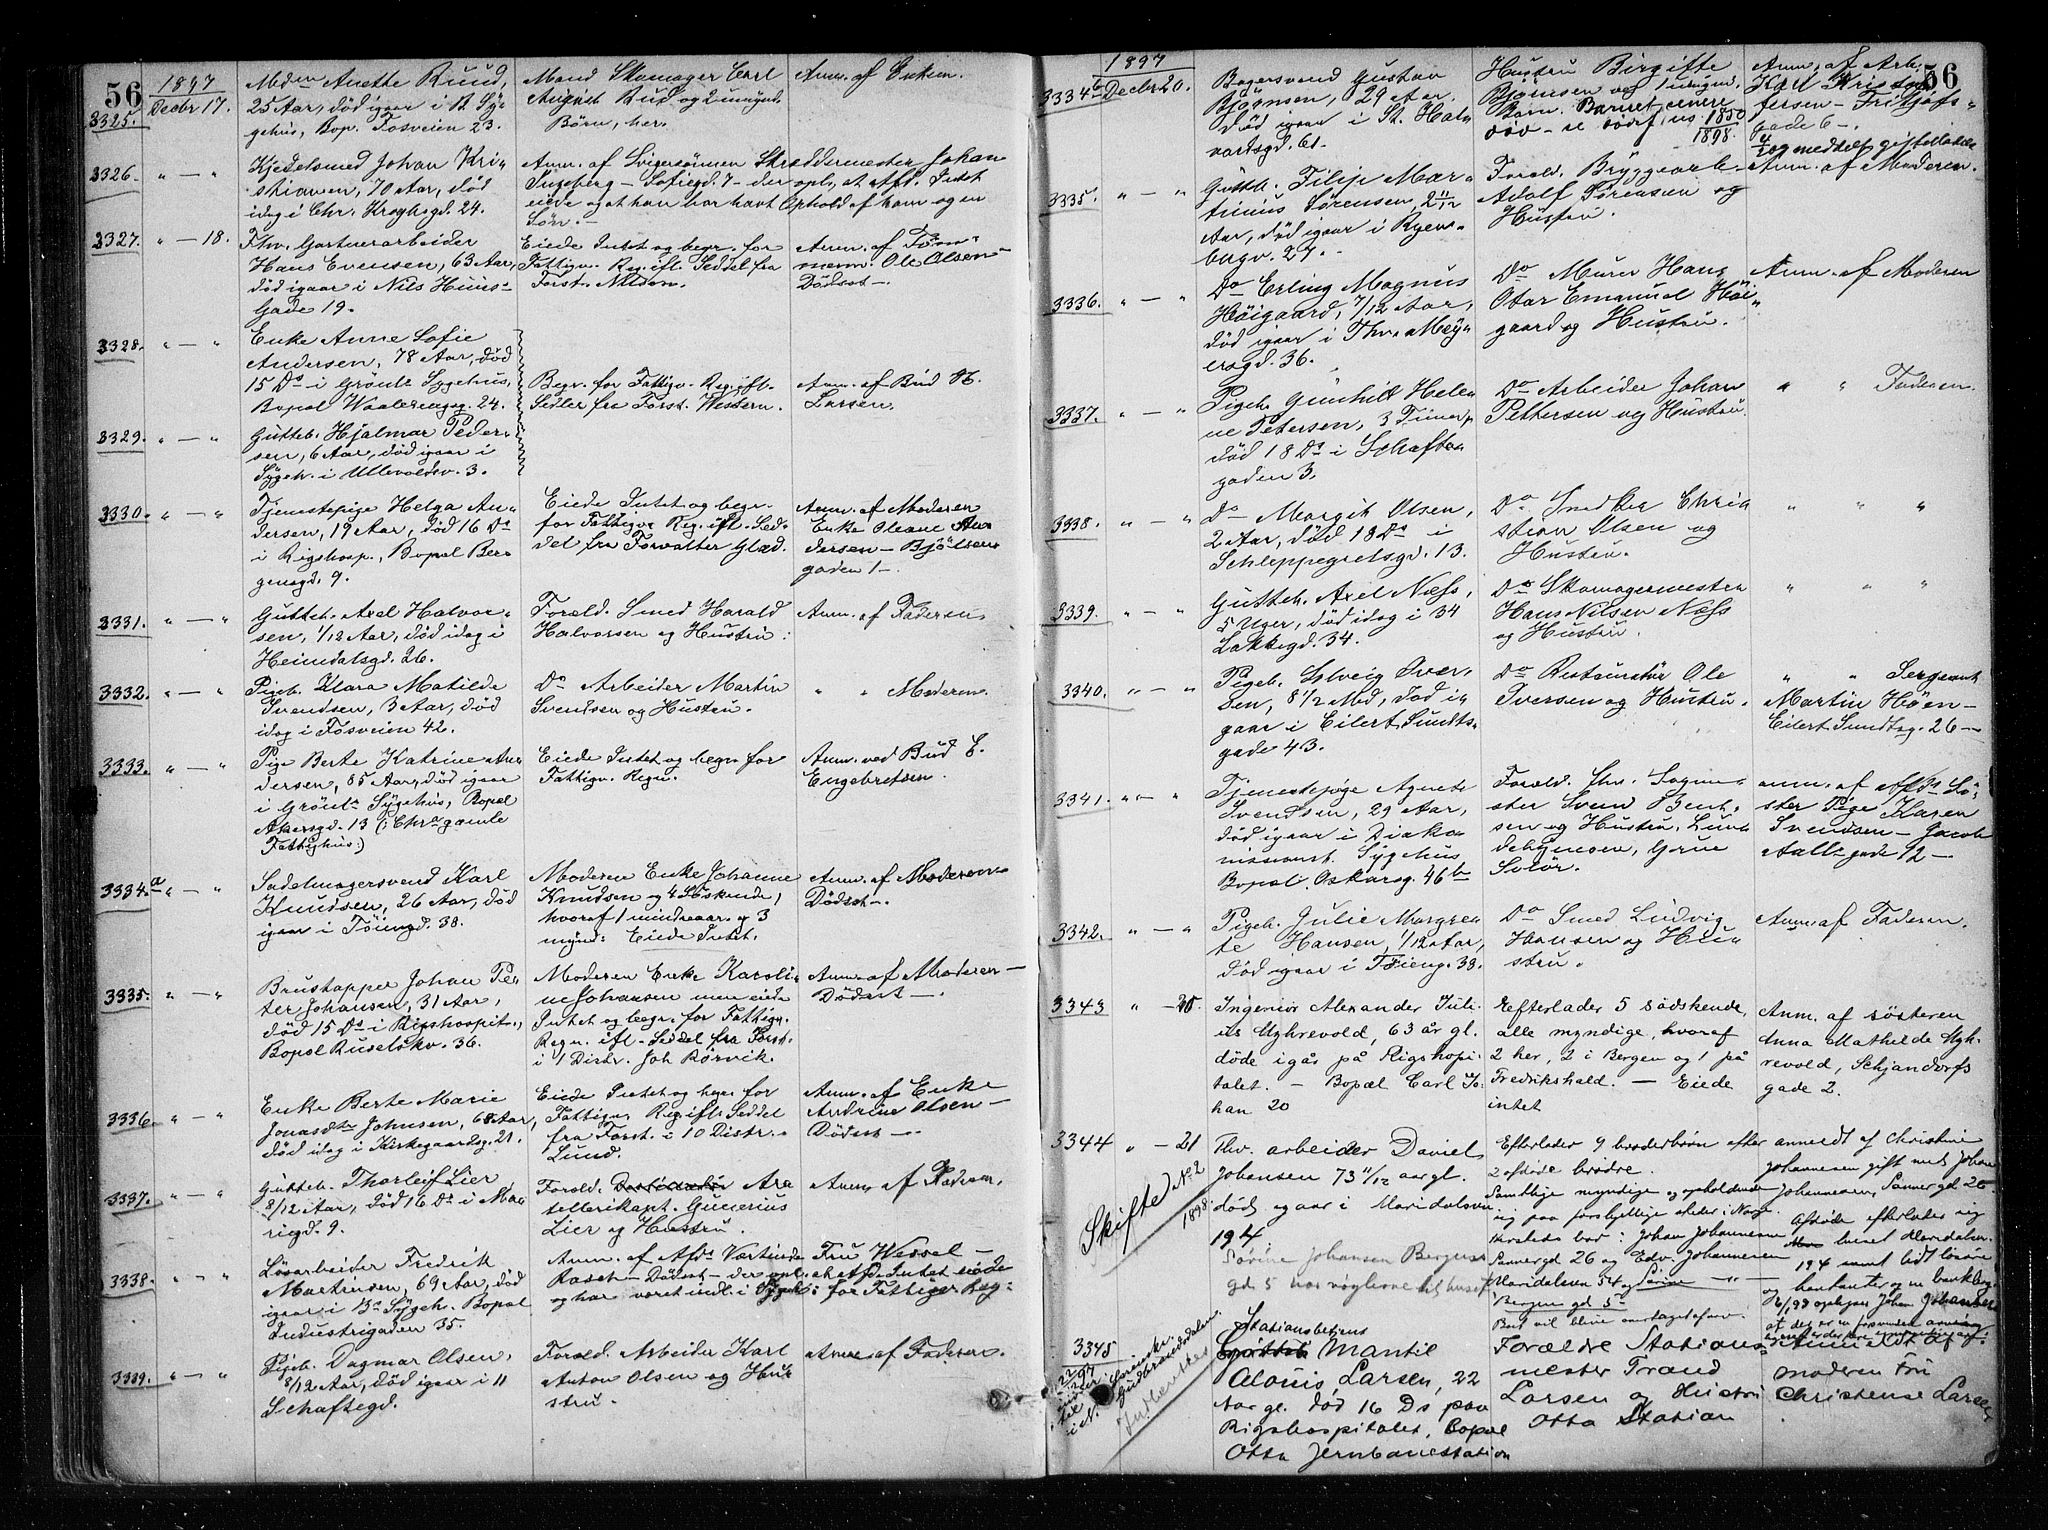 56
1897
3325. Decbr 17.
Mdm Anethe Ruud,
25 Aar, død igaar i K. Sy-
gehus, Bop. Fosveien 23.
Mand Skomager Carl
August Rud og 2 umynd.
Børn, her.
Anm. af Enken.
3326. " — "
Kjedelsmed Johan Kri-
stiansen, 70 Aar, død
idag i Chr. Kroghsgd. 24.
Anm. af Svigersønnen Skræddermester Johan
Tingberg — Sofiegd. 7 — der opl. at Afd. Intet
eiede og at han har havt Ophold af ham og en
Søn. —
3327. " — 18.
Fhv. Gartnerarbeider
Hans Evensen, 63 Aar,
død igaar i Nils Huus-
Gade 19.
Eiede Intet og begr. for
Fattigv. Reg. ifl. Seddel fra
Forst. Nilsen.
Anm. af Tøm-
merm. Ole Olsen —
Dødsat —.
3328. " — "
Enke Anne Sofie
Andersen, 78 Aar, død
15 Ds i Grønl. Sygehus,
Bopæl Waalerengg. 24.
Begr. for Fattigv. Reg. ifl.
Sedler fra Forst. Western.
Anm. af Bud H.
Larsen.
3329. " — "
Gutteb. Hjalmar Peder-
sen, 6 Aar, død igaar i
Sygeh. i Ullevoldsv. 3.
3330. " — "
Tjenestepige Helga An-
dersen, 19 Aar, død 16 Ds
i Rigshosp., Bopæl Ber-
gensgd. 9.
Eiede Intet og begr.
for Fattigv. Reg. ifl. Sed-
del fra Forvalter Glad.
Anm. af Moderen
Enke Oleane An-
dersen — Bjølsen-
gaden 1 —.
3331. " — "
Gutteb. Axel Halvor-
sen, 1/12 Aar, død idag i
Heimdalsgd. 26.
Foræld. Smed Harald
Halvorsen og Hustru.
Anm. af Faderen.
3332. " — "
Pigeb. Klara Matilde
Svendsen, 3 Aar, død
idag i Fosveien 42.
Do Arbeider Martin
Svendsen og Hustru.
" " Moderen.
3333. " — "
Pige Berte Katrine An-
dersen, 85 Aar, død igaar
i Grønls Sygehus, Bopæl
Akersgd. 13 (i Chra gamle
Fattighus.)
Eiede Intet og begr. for
Fattigv. Regn.
Anm. ved Bud E.
Engebretsen.
3334.a " — "
Sadelmagersvend Karl
Knudsen, 26 Aar, død
igaar i Tøiengd. 38.
Moderen Enke Johanne
Knudsen og 4 Søskende,
hvoraf 1 mindreaar. og 3
mynd: Eiede Intet.
Anm. af Moderen —
Dødsat —.
3335. " — "
Brustapper Johan Pe-
ter Johansen, 31 Aar,
død 15 Ds i Rigshospit.,
Bopæl Ruseløkv. 36.
Moderen Enke Karoli-
ne Johansen men eiede
Intet og begr. for Fattigv.
Regn. ifl. Seddel fra Forst.
i 1 Distr. Joh Rørvik.
Anm. af Moderen —
Dødsat —.
3336. " — "
Enke Berte Marie
Jonasdtr Johnsen, 68 Aar,
død idag i Kirkegaardsg. 21.
Eiede Intet og begr. for
Fattigv. Reg. ifl. Seddel
fra Forst. i 10 Distr.
Lund.
Anm. af Enke
Andrine Olsen —
Dødsat —.
3337. " — "
Gutteb. Thorleif Lier
8/12 Aar, død 16 Ds i Ma-
rigd. 9.
Foræld. Ar-
tellerikapt. Gunerius
Lier og Hustru.
Anm. af Faderen.
3338. " — "
Løsarbeider Fredrik
Martinsen, 69 Aar, død
igaar i Ks Sygeh. Bopæl
Industrigaden 35.
Anm. af Afds Værtinde Fru Wessel —
Dødsat — der opl. at Afd. Intet eiede
og har været indl. i Sygeh. for Fattigv. Reg.
3339. " — "
Pigeb. Dagmar Olsen,
8/12 Aar, død igaar i 11
Schaftegd.
Foræld. Arbeider Karl
Anton Olsen og Hu-
stru.
Anm. af Faderen.
56
1897
3334b Decbr 20.
Bagersvend Gustav
Bjørnsen, 29 Aar.
død igaar i St. Hal-
vardsgd. 61.
Hustru Birgitte
Bjørnsen og 1 umynd.
Barn. Barnet senere
død — se dødsf. ns. 1850
1898.
Anm. af Arb.
Karl Kristof-
fersen — Fritjofs-
gade 6 —.
3335. " — "
Gutteb. Filip Mar-
tinius Sørensen, 2 11/12
Aar, død igaar i Ryen-
bergv. 27. —
Foræld. Bryggearb.
Adolf Sørensen og
Hustru.
Anm. af Moderen.
3336. " — "
Do Erling Magnus
Høigaard, 7/12 Aar,
død igaar i Thv. Mey-
ersgd. 36.
Do Murer Hans
Otar Emanuel Høi-
gaard og Hustru.
Anm. af Moderen
3337. " — "
Pigeb. Gunhild Hele-
ne Petersen, 3 Timer,
død 18 Ds i Schafte-
gaden 3.
Do Arbeider Johan
Pettersen og Hustru.
" " Faderen.
3338. " — "
Do Margit Olsen,
2 Aar, død 18 Ds i
Schleppegrelsgd. 13.
Do Snedker Chri-
stian Olsen og
Hustru.
" " "
3339. " — "
Gutteb. Axel Næss,
5 Uger, død idag i 34
Lakkegd. 34.
Do Skomagermester
Hans Nilsen Næss
og Hustru.
" " "
3340. " — "
Pigeb. Solveig Iver-
sen, 8 1/2 Md, død i-
gaar i Eilert Sundts-
gade 43.
Do Restauratør Ole
Iversen og Hustru.
" " Sergeant
Martin Høen —
Eilert Sundtsg. 26 —
3341. " — "
Tjenestepige Agnete
Svendsen, 29 Aar,
død igaar i Diako-
nissanst. Sygehus
Bopæl. Oskarsg. 46b
Foræld. fhv. Sogme-
ster Svend Bent-
sen og Hustru, Lun-
debymoen, Grue
Solør.
anm. af Afds Sø-
ster Pige Karen
Svendsen — Jacob
Aalls gade 12 —
3342. " — "
Pigeb. Julie Margre-
te Hansen, 1/12 Aar,
død igaar i Tøieng. 38.
Do Smed Ludvig
Hansen og Hu-
stru.
Anm. af Faderen.
3343 " — 20.
Ingeniør Alexander Juli-
us Myhrevold, 63 år gl.
døde igår på Rigshospi-
talet. — Bopæl Carl Jo-
han 20
Efterlader 5 sødskende,
alle myndige, hvoraf
2 her, 2 i Bergen og 1 på
Fredrikshald. — Eiede
intet
Anm. af søsteren
Anna Mathilde Myh-
revold, Schjandorfs
gade 2.
3344 " — 21
Skifte No 2
1898
Fhv. arbeider Daniel
Johansen 73 11/12 aar gl.
død igaar i Maridalsvn
194
Sørine Johansen Bergens
gd 5 har nøglerne til huset
Efterlader 9 broderbørn efter
2 afdøde brødre.
Samtlige myndige og opholdende
sig paa forskjellige steder i Norge.
Johan Johannesen
Sannergd 26 og Edv. Johannesen
Maridalsvn 54 og Sørine — " —
Bergens gd 5
anmeldt af Christine
Johannesen gift med Johan
Johannesen, Sannergd 26.
Afdøde efterlader sig
huset Maridalsvn.
194 samt lidt løsøre
og en bankbog
3345
Stationsbetjent
Mantil
Alouis Larsen, 22
Aar gl. død 16 Ds paa
Rigshospitalet, Bopæl
Otta Jernbanestation
Forældre Stations-
mester Trand
Larsen og Hustru
Otta Station
Anmeldt af
moderen Fru
Christense Larsen